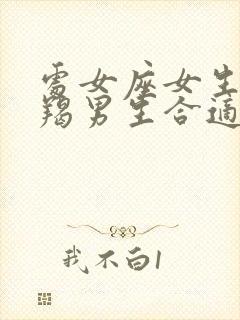 處女座女生
羯男生合適
我不白1